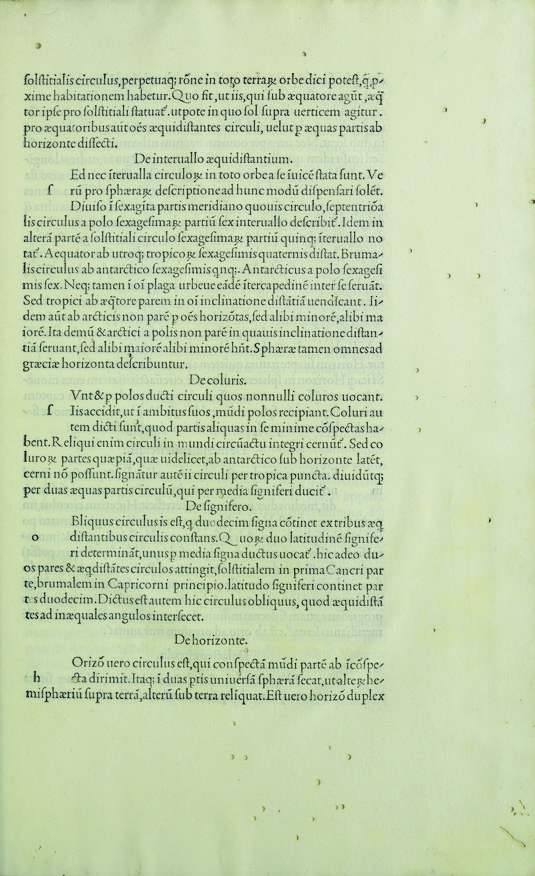 ſolſtitialis circulus, perpetuaq; rōne in toto terraꝝ orbe dici poteſt, q̄, ꝓ-
xime habitationem habetur. Quo fit, ut iis, qui ſub æquatore agūt, æq̄
tor ipſe pro ſolſtitiali ſtatuat᷑. utpote in quo ſol ſupra uerticem agitur.
pro æquatoribus aūt oēs æquidiſtantes circuli, uelut ꝑ æquas partis ab
horizonte diſſecti.
De interuallo æquidiſtantium.
Ed nec īterualla circuloꝝ in toto orbe a ſe īuicē ſtata ſunt. Ve
ſ rū pro ſphæraꝝ deſcriptione ad hunc modū diſpenſari ſolēt.
Diuiſo ī ſexagīta partis meridiano quouis circulo, ſeptentriōa
lis circulus a polo ſexageſimaꝝ partiū ſex interuallo deſcribit᷑. Idem in
alterā partē a ſolſtitiali circulo ſexageſimaꝝ partiū quinq; īteruallo no
tat᷑. Aequator ab utroq; tropico ꝝ ſexageſimis quaternis diſtat. Bruma-
lis circulus ab antarctico ſexageſimis qnq;. Antarcticus a polo ſexageſi
mis ſex. Neq; tamen ī oī plaga urbeue eādē ītercapedinē inter ſe ſeruāt.
Sed tropici ab æq̄tore parem in oī inclinatione diſtātiā uendicant. Ii-
dem aūt ab arcticis non parē ꝑ oēs horizōtas, ſed alibi minorē, alibi ma
iorē. Ita demū & arctici a polis non parē in quauis inclinatione diſtan-
tiā ſeruant, ſed alibi maiorē alibi minorē hūt. Sphæræ tamen omnes ad
græciæ horizonta deſcribuntur.
De coluris.
Vnt & ꝑ polos ducti circuli quos nonnulli coluros uocant.
ſ Iis accidit, ut ī ambitus ſuos, mūdi polos recipiant. Coluri au
tem dicti ſunt, quod partis aliquas in ſe minime cōſpectas ha-
bent. Reliqui enim circuli in mundi circūactu integri cernūt᷑. Sed co
luroꝝ partes quæpiā, quæ uidelicet, ab antarctico ſub horizonte latēt,
cerni nō poſſunt. ſignātur autē ii circuli per tropica puncta. diuidūtq;
per duas æquas partis circulū, qui per media ſigniferi ducit᷑.
De ſignifero.
Bliquus circulus is eſt, q duodecim ſigna cōtinet ex tribus æq
o diſtantibus circulis conſtans. Quoꝝ duo latitudinē ſignife-
ri determināt, unus ꝑ media ſigna ductus uocat᷑. hic adeo du-
os pares & æq̄diſtātes circulos attingit, ſolſtitialem in prima Cancri par
te, brumalem in Capricorni principio. latitudo ſigniferi continet par
tes duodecim. Dictus eſt autem hic circulus obliquus, quod æquidiſtā
tes ad inæquales angulos interſecet.
De horizonte.
Orizō uero circulus eſt, qui conſpectā mūdi partē ab īcōſpe-
h cta dirimit. Itaq; ī duas ptis uniuerſā ſphærā ſecat, ut alteꝝ he-
miſphæriū ſupra terrā, alterū ſub terra reliquat. Eſt uero horizō duplex